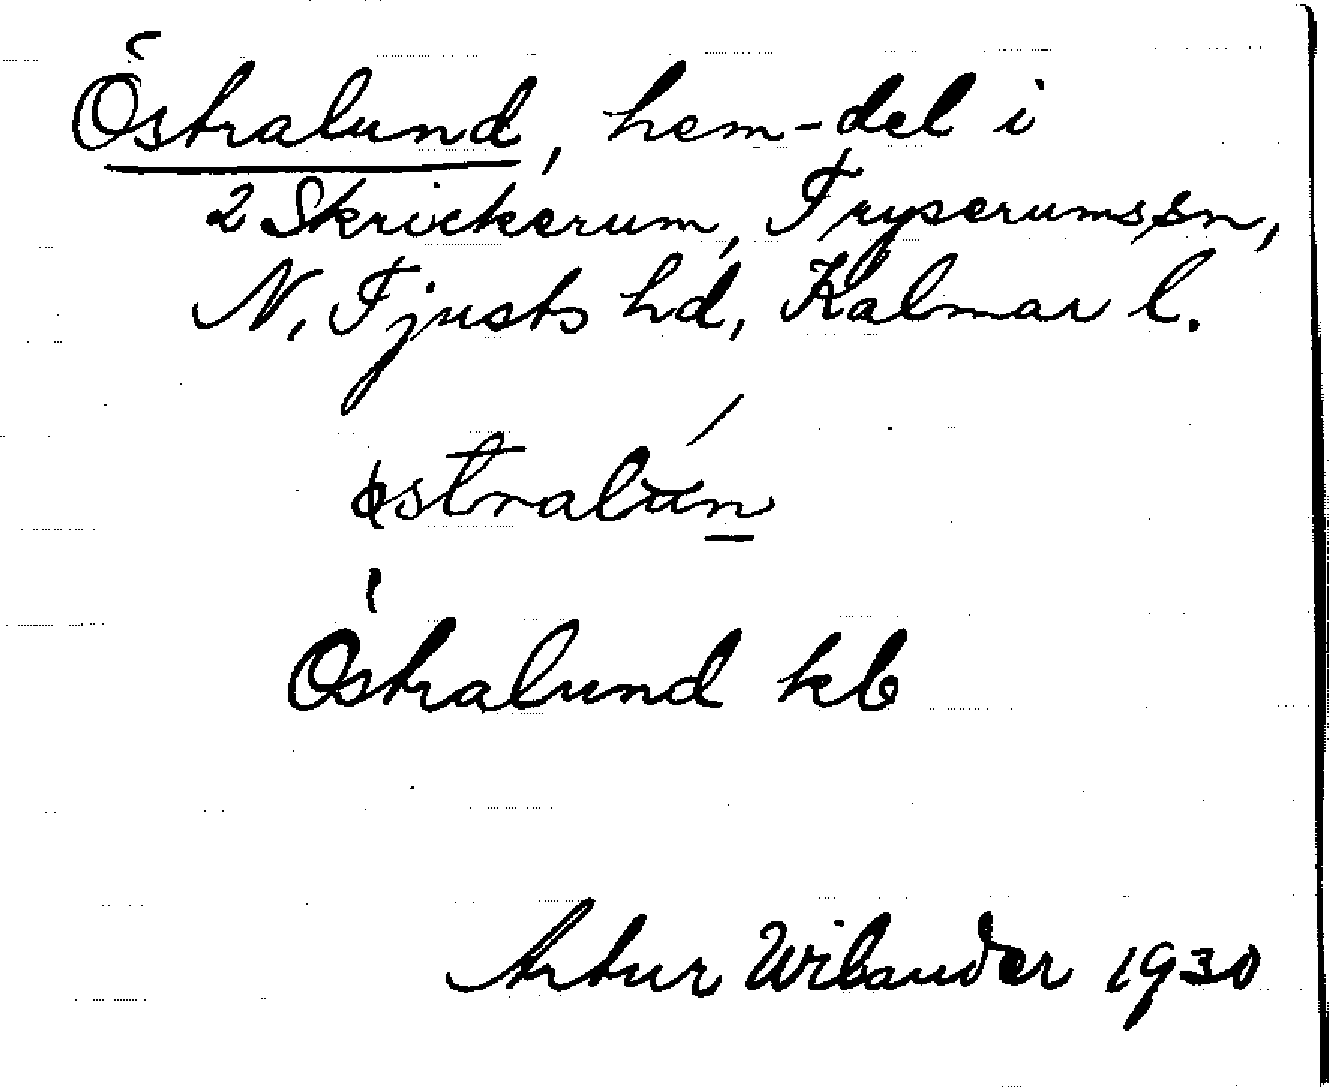 Östralund, hem-del i
2 Skrickerum, Tryserums sn,
N. Tjusts hd, Kalmar l.
Östralund kb
Artur Wilander 1930